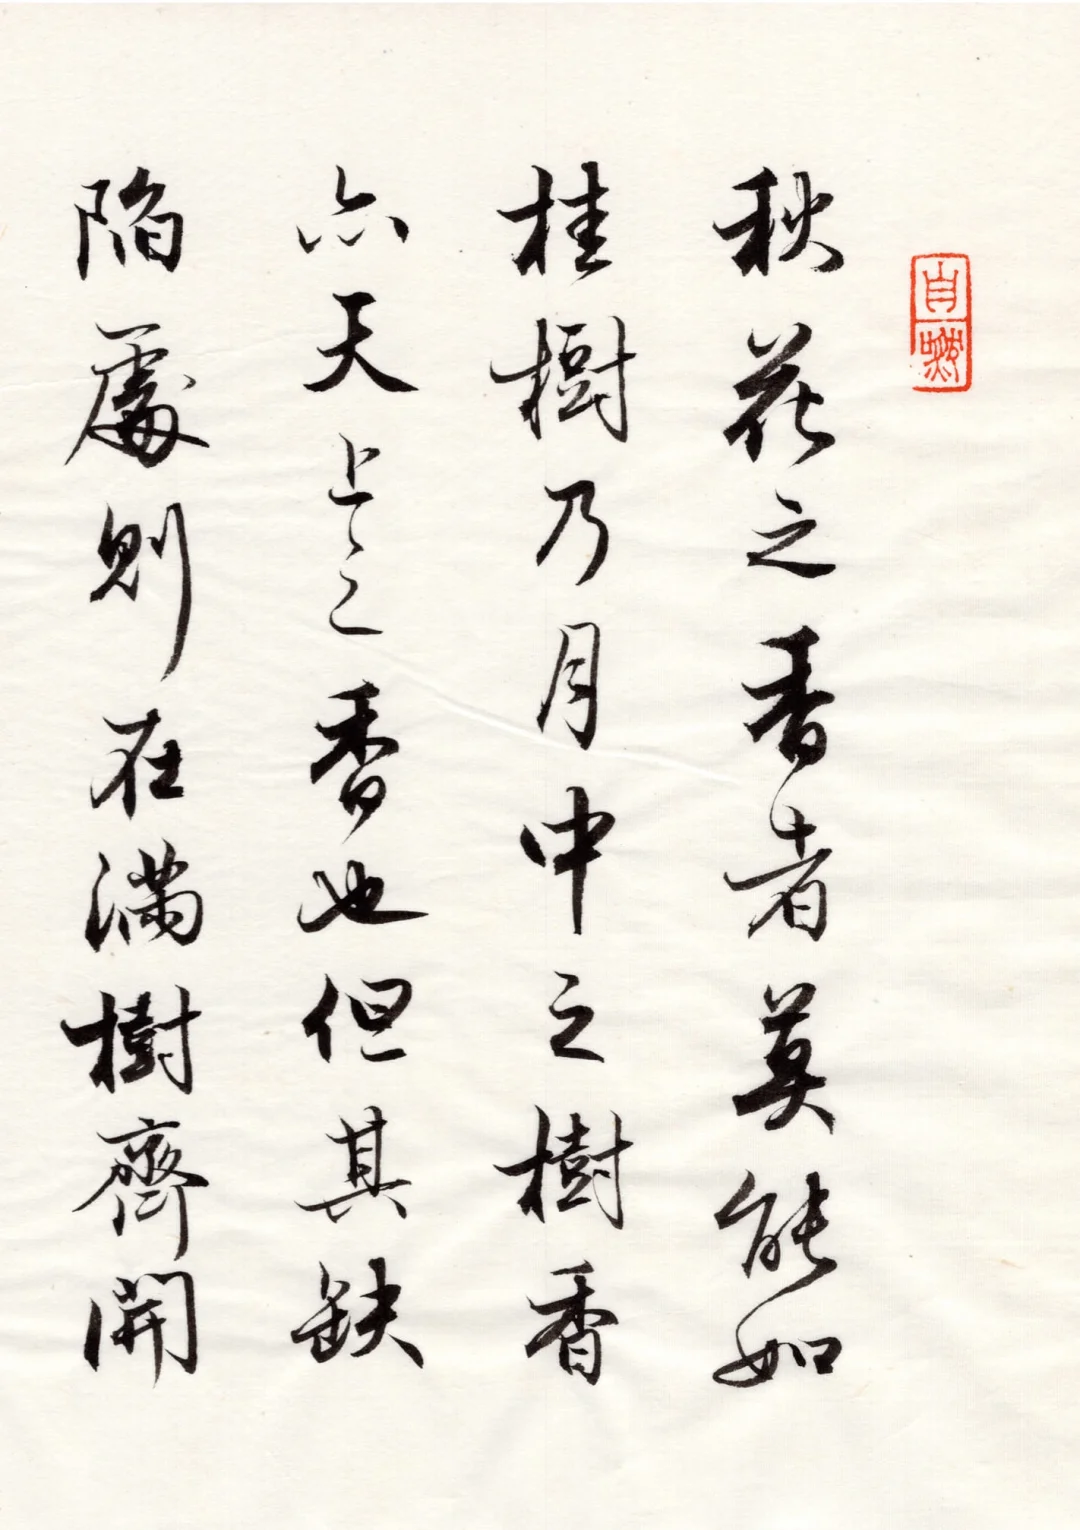 秋花之香者莫能如
桂樹乃月中之樹香
亦天上之香也但其缺
陷處則在滿樹齊開